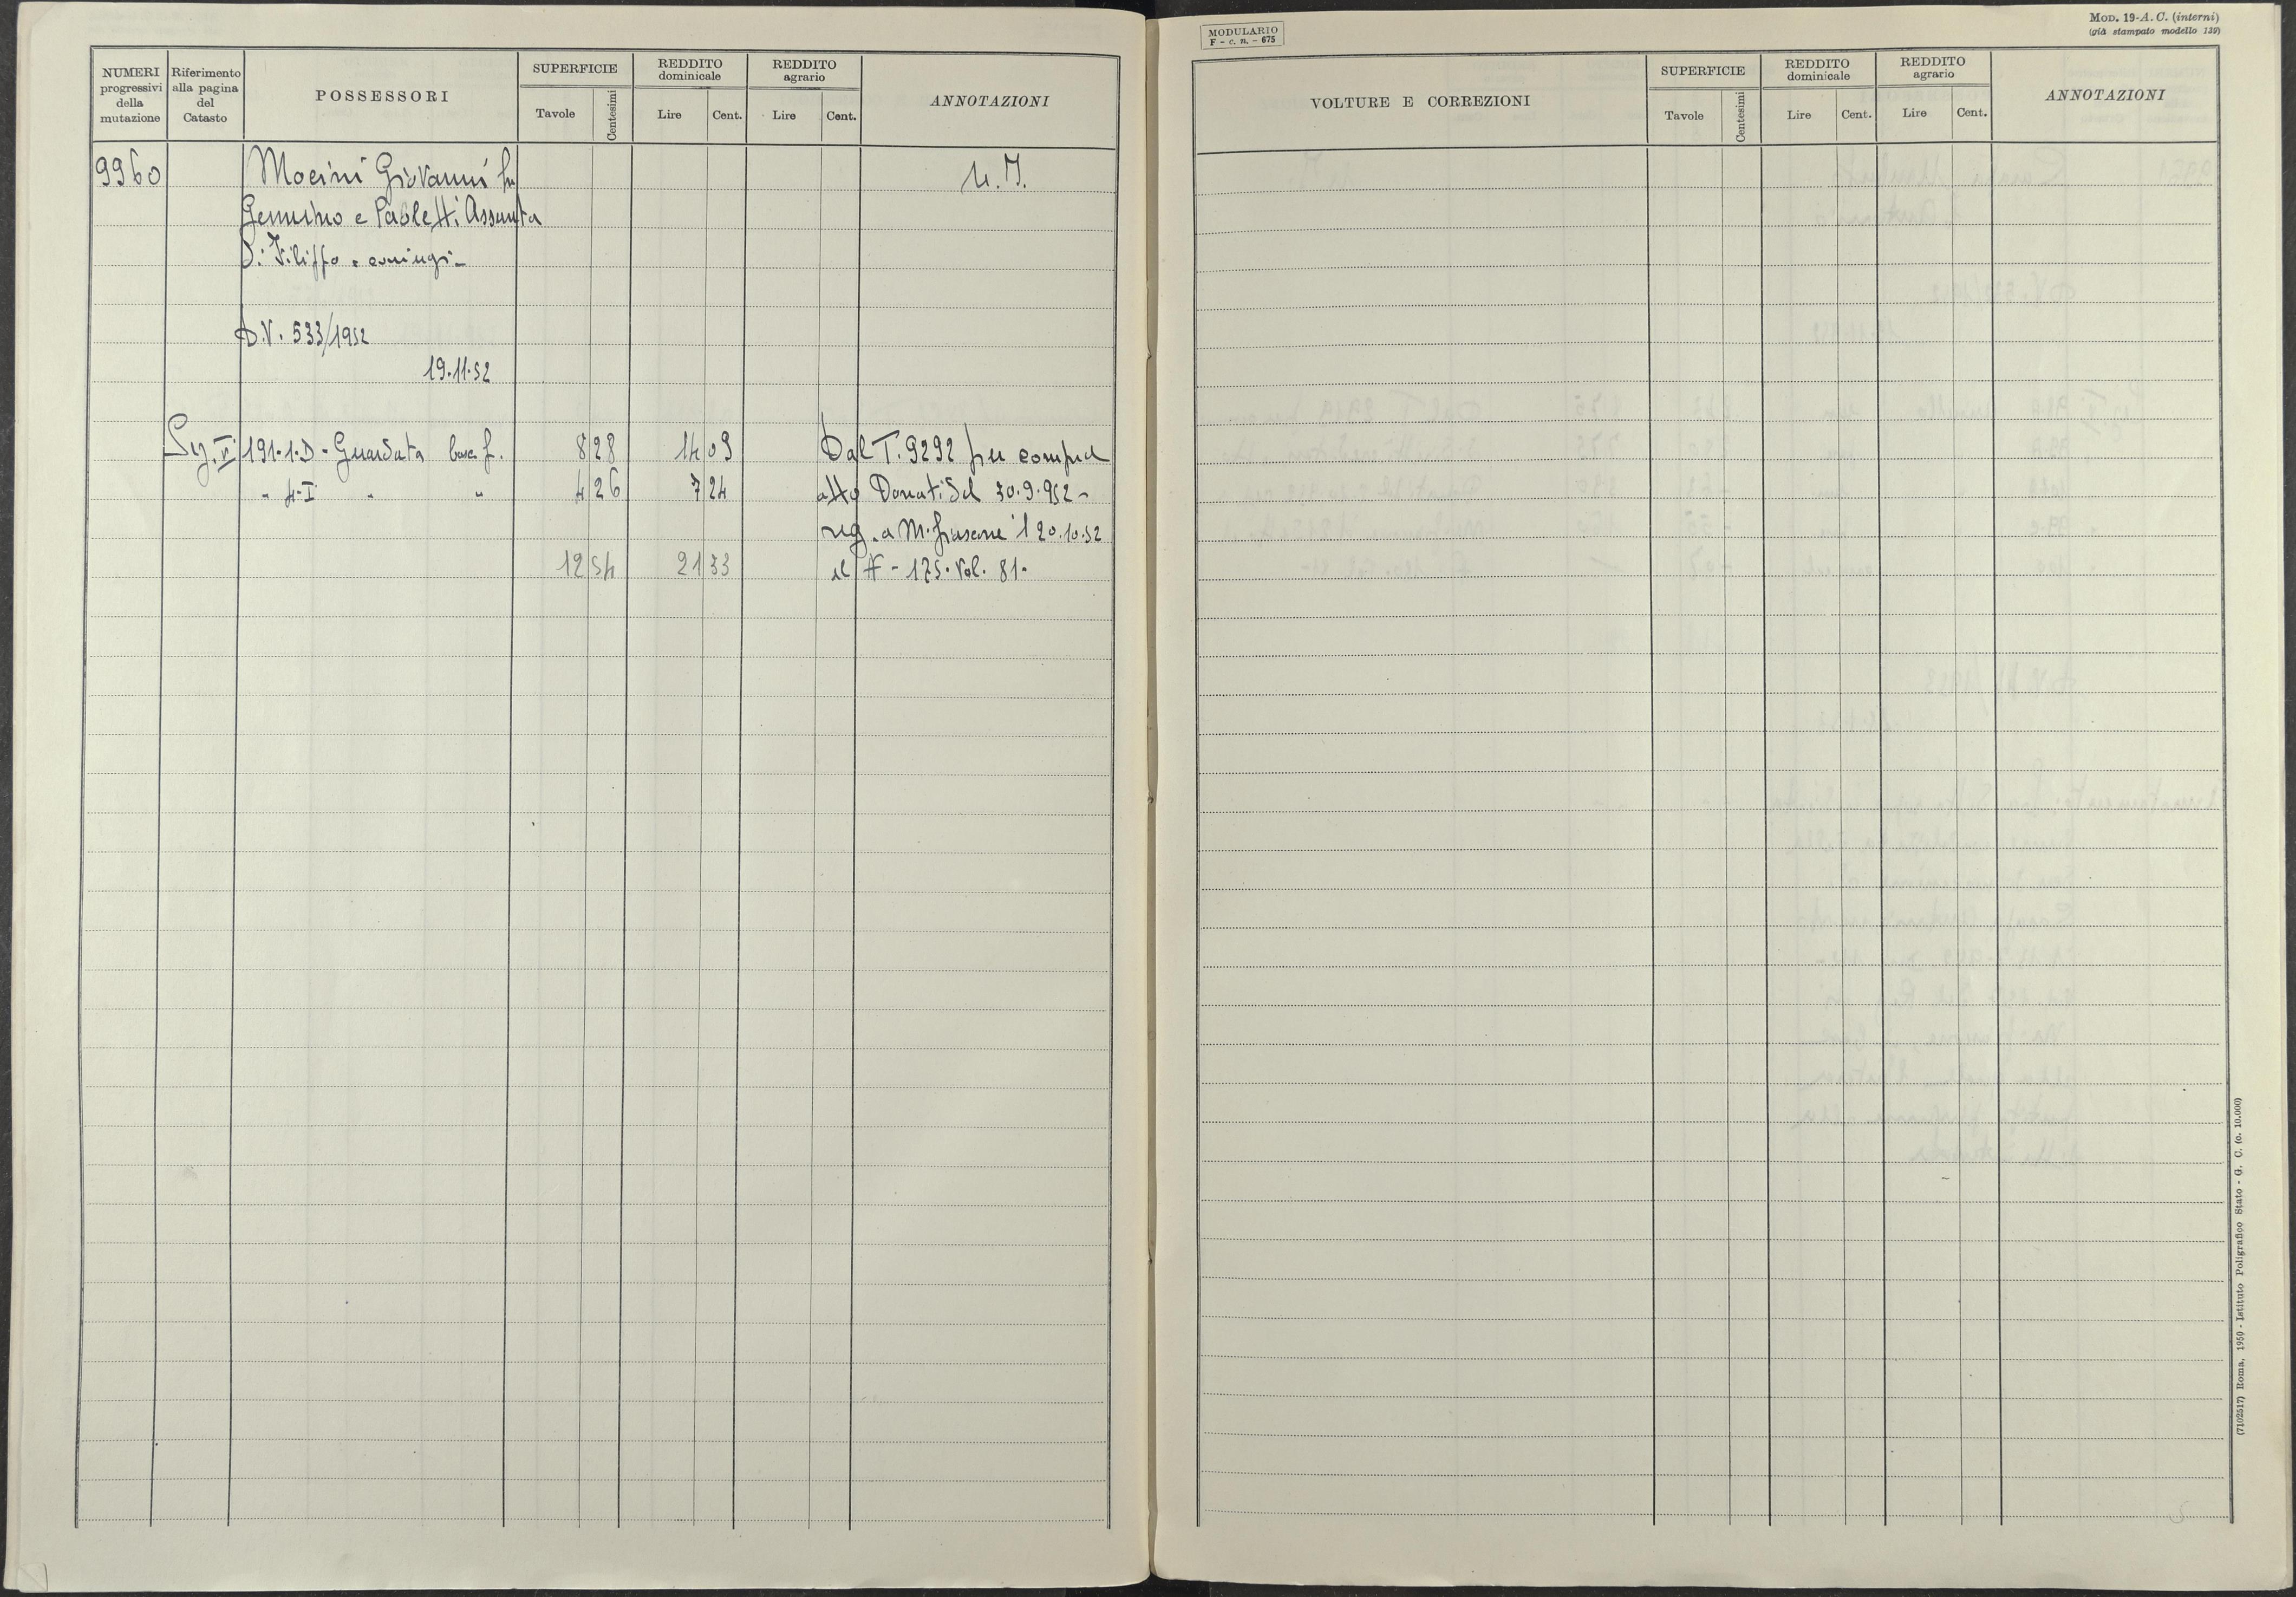 MODULARIO
F - c. n. - 675
MOD. 19-A. C. (interni)
(già stampato modello 139)
NUMERI progressivi della mutazione
Riferimento alla pagina del Catasto
POSSESSORI
SUPERFICIE
Tavole
Centesimi
REDDITO dominicale
Lire
Cent.
REDDITO agrario
Lire
Cent.
ANNOTAZIONI
9960 Mocini Giovanni fu U.I.
Genuino e Paoletti Assunta
Di Filippo . coniugi -
D.V. 533/1952
19.11.52
Sez. VI 191-1.D - Guardata 8 28 14 09 Dal T. 9292 per
" 4-I " " 4 26 7 24 atto Donati del 30.9.952 -
reg. a M. fiascone il 20.10.52
12 54 21 33 al # - 175. Vol. 81.
VOLTURE E CORREZIONI
SUPERFICIE
Tavole
Centesimi
REDDITO dominicale
Lire
Cent.
REDDITO agrario
Lire
Cent.
ANNOTAZIONI
(7102517) Roma, 1950 - Istituto Poligrafico Stato - G. C. (c. 10.000)